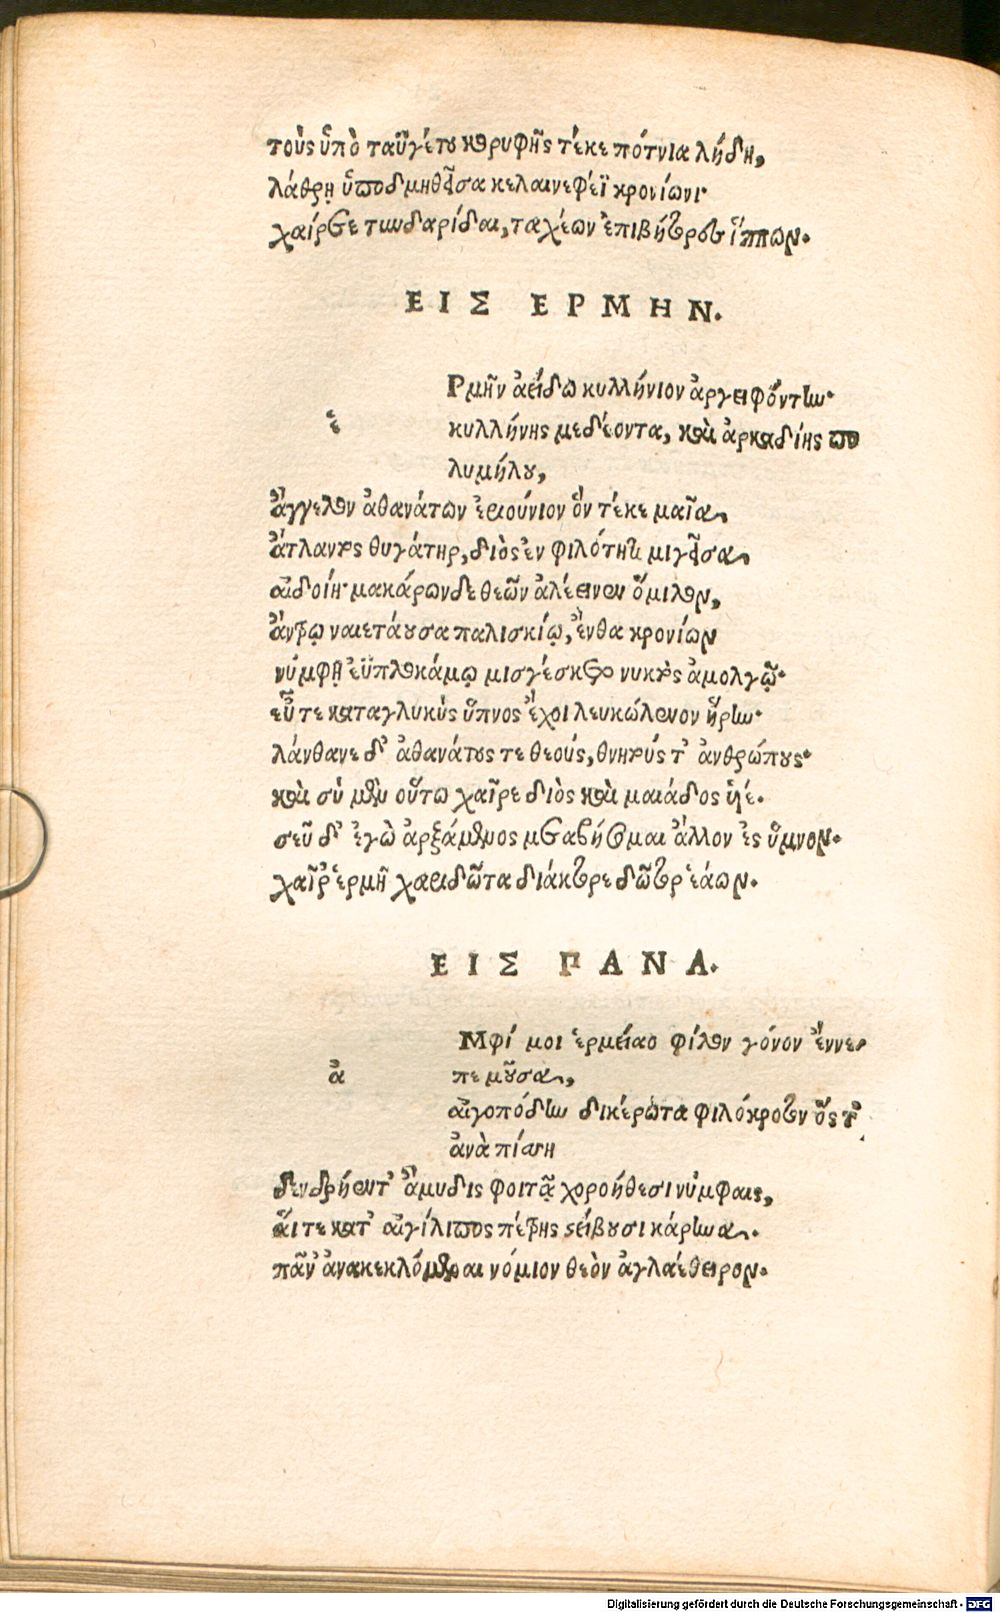 τοὺς ὑπὸ ταϋγέτου κορυφῆς τέκε πότνια λήδη,
λάθρῃ ὑποδμηθεῖσα κελαινεφέϊ κρονίωνι·
χαίρετε τυνδαρίδαι, ταχέων ἐπιβήτορες ἵππων.
ΕΙΣ ΕΡΜΗΝ.
Ρμῆν ἀείδω κυλλήνιον ἀργειφόντην·
ἑ
κυλλήνης μεδέοντα, καὶ ἀρκαδίης πο
λυμήλου,
ἄγγελον ἀθανάτων ἐριούνιον ὃν τέκε μαῖα,
ἄτλαντος θυγάτηρ, διὸς ἐν φιλότητι μιγεῖσα,
αἰδοίη· μακάρων δε θεῶν ἀλέεινεν ὅμιλον,
ἄντρῳ ναιετάουσα παλισκίῳ, ἔνθα κρονίων
νύμφῃ ἐϋπλοκάμῳ μισγέσκετο νυκτὸς ἀμολγῷ·
εὖτε κατα γλυκὺς ὕπνος ἔχοι λευκώλενον ἥρην·
λάνθανε δ' ἀθανάτους τε θεούς, θνητούς τ' ἀνθρώπους·
καὶ σύ μὲν οὕτω χαῖρε διὸς καὶ μαιάδος ὑιέ.
σεῦ δ' ἐγὼ ἀρξάμενος μεταβήσομαι ἄλλον ἐς ὕμνον.
χαῖρ' ἑρμῆ χαριδῶτα διάκτορε δῶτορ ἑάων.
ΕΙΣ ΠΑΝΑ.
Μφί μοι ἑρμείαο φίλον γόνον ἔννε
ἀ
πε μοῦσα,
αἰγοπόδην δικέρωτα φιλόκροτον ὅς τ'
ἀνὰ πίση
δενδρήεντ' ἄμυδις φοιτᾷ χοροήθεσι νύμφαις,
αἵ τε κατ' αἰγίλιπος πέτρης στείβουσι κάρηνα.
πᾶν' ἀνακεκλόμεναι νόμιον θεὸν ἀγλαέθειρον.
Digitalisierung gefördert durch die Deutsche Forschungsgemeinschaft - DFG